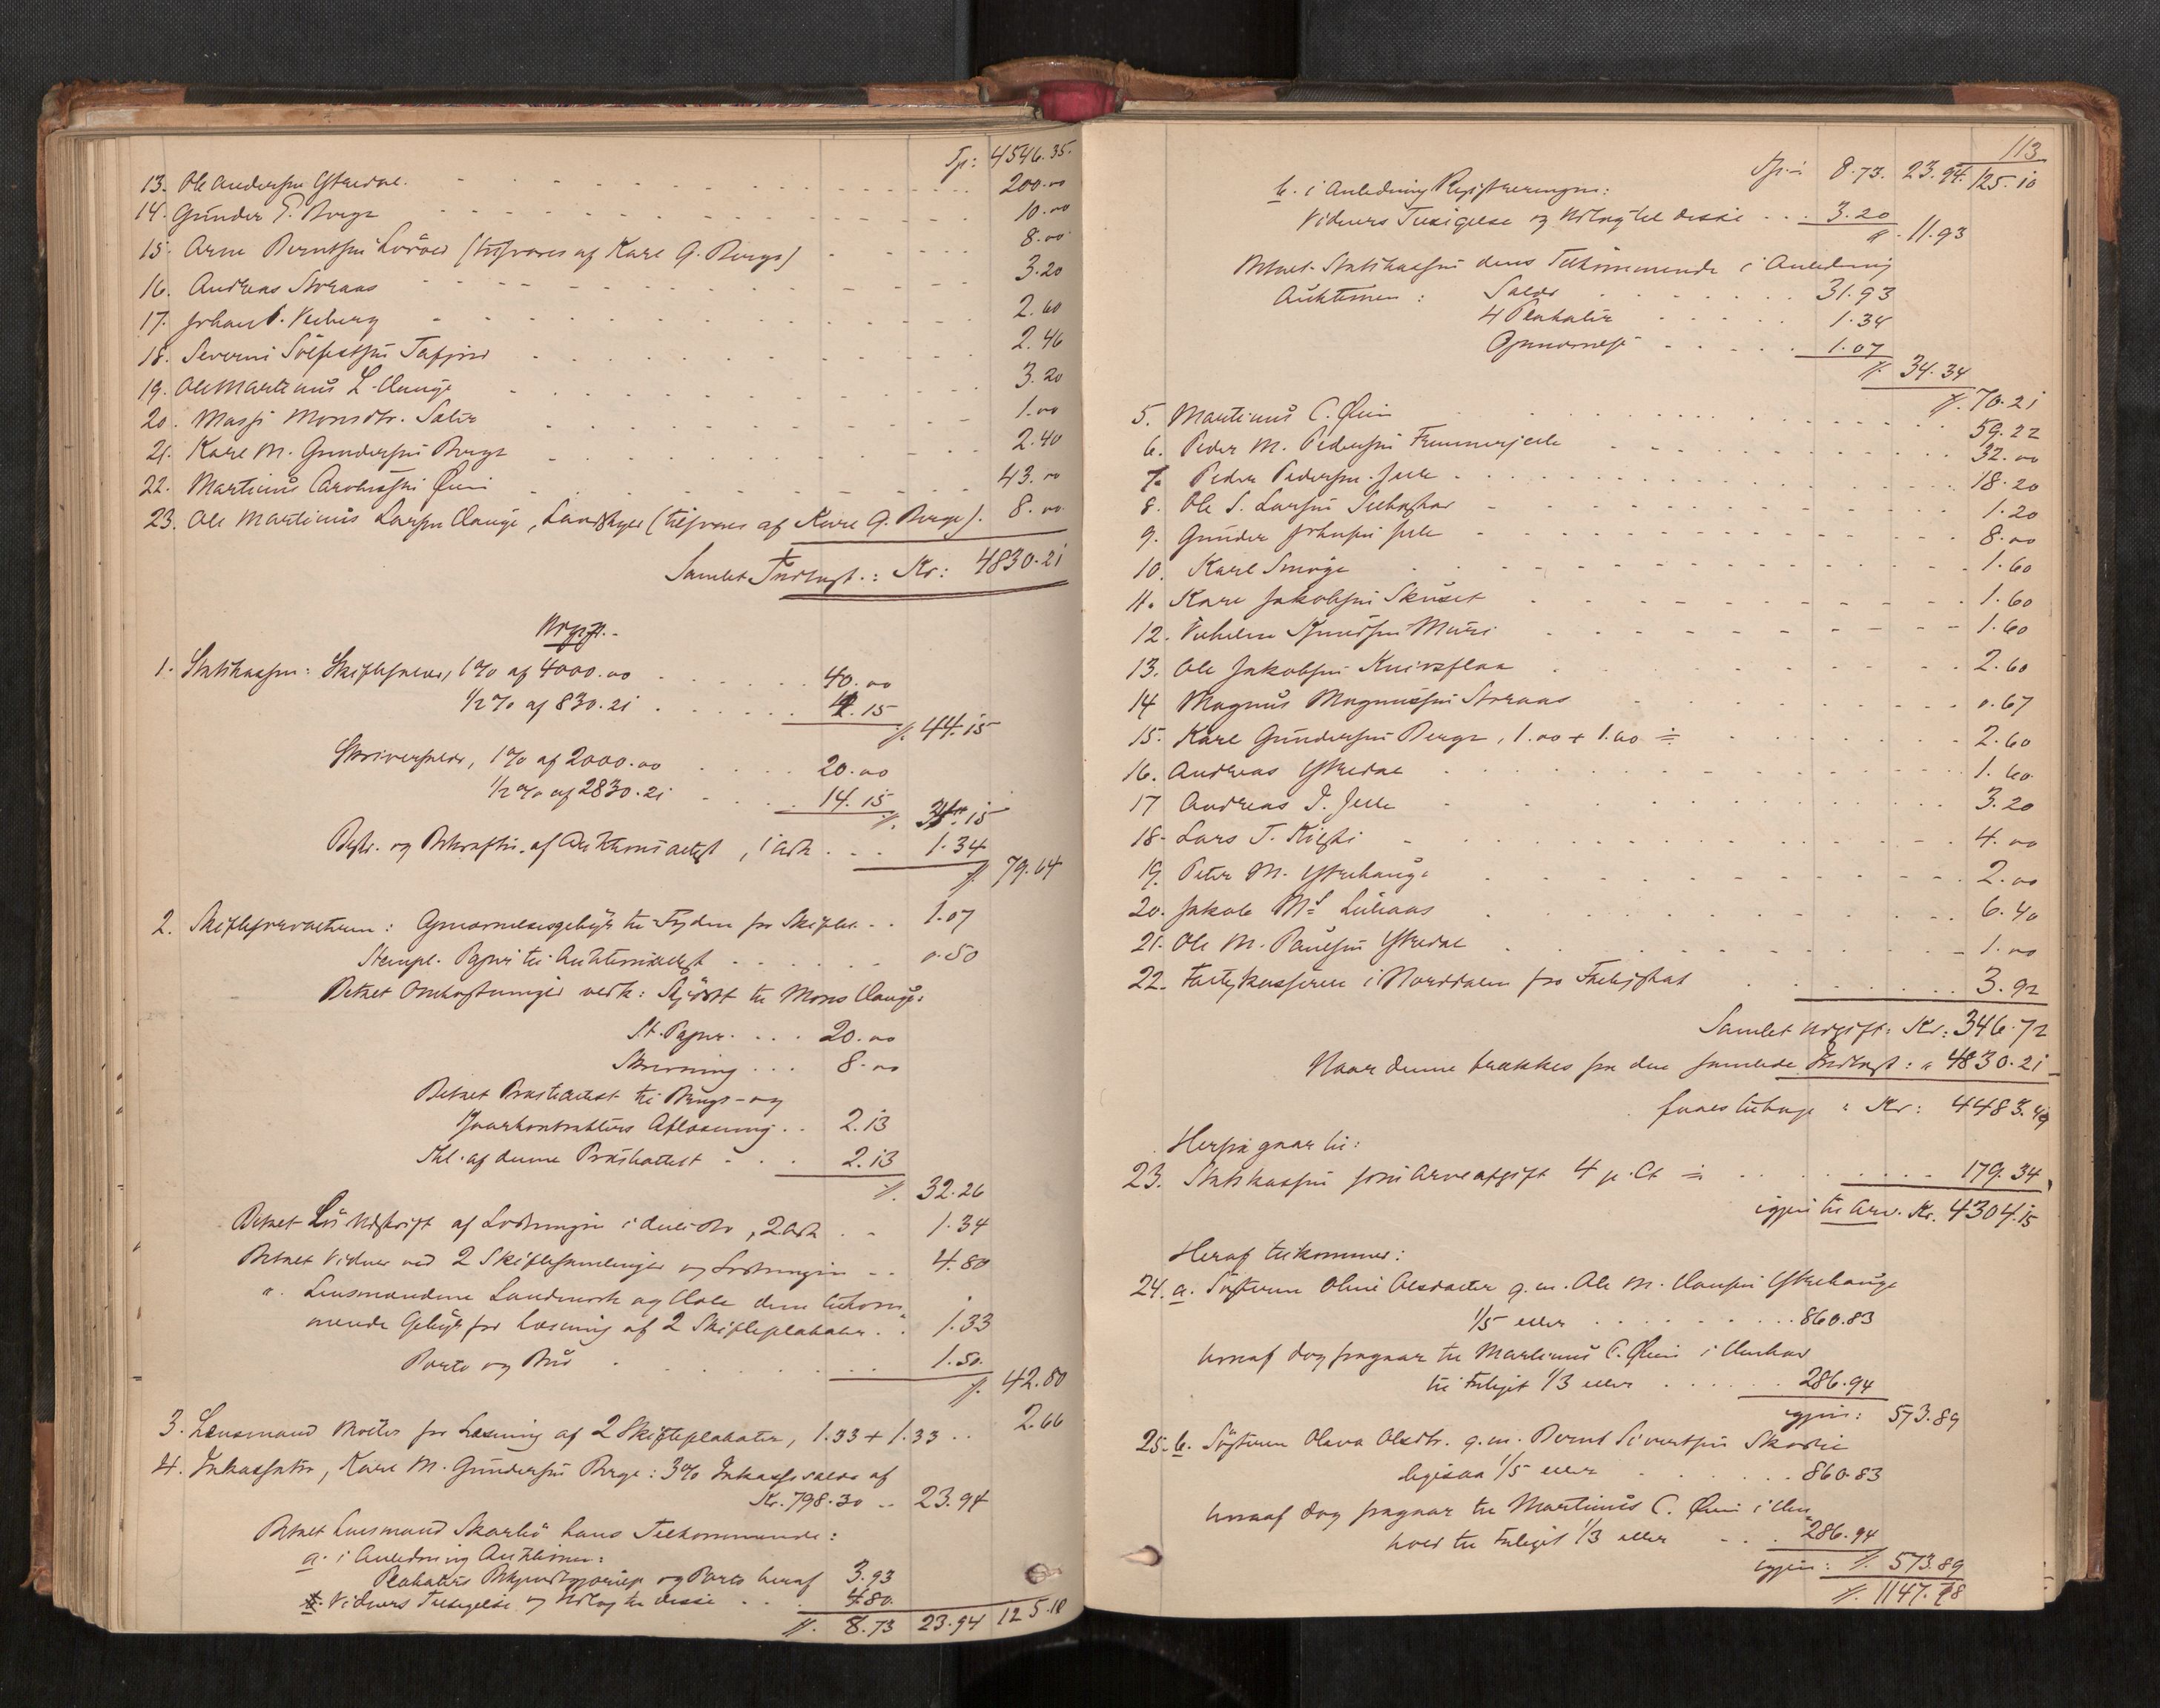 Tp: 4546.35.
13. Ole Andersen Ytredal. 200.00
14. Gunder P. Berge 10.00
15. Arne Berntsen (tilsvares af Karl G. Berge) 8.00
16. Andreas Storaas 3.20
17. Johan Veiberg 2.60
18. Severin Sölfestsen Tafjord 2.46
19. Ole Martinus L. Hauge 3.20
20. Massi Monsdtr. Sætr 1.00
21. Karl M. Gundersen Berge 2.40
22. Martinus Øien 43.00
23. Ole Martinus Larsen Hauge, Landskyld (tilsvares af Karl G. Berge). 8.00
Samlet Indtægt.: Kr: 4830.21
Udgift.
1. Statskassen: Skiftesalær, 1% af 4000.00 40.00
1/2% af 830.21 4.15
/. 44.15
Skriversalær, 1% af 2000.00 20.00
1/2% af 2830.21 14.15
/. 34.15
Beskr. og Bekræftn. af Auktionsattest, 1 Ark 1.34
/. 79.64
2. Skifteforvalteren: Opnævnelsesgebyr til Fogden for Skiftet 1.07
Stempl. Papir til Auktionsattest 0.50
Betalt Omkostninger vedk: Skjödet til Mons Hauge:
St. Papir. 20.00
Skrivning 8.00
Betalt Præsteattest til Brugs- og
Kaarkontrakters Aflæsning 2.13
Thl. af denne Præsteattest 2.13
/. 32.26
Betalt Udskrift af Lodningen, 2 Ark 1.34
Betalt Vidner ved 2 Skiftesamlinger og Lodningen 4.80
". Lensmændene Landmark og Hole dem tilkom-
mende Gebyr for Læsning af 2 Skifteplakater. 1.33
Porto og Bud 1.50
/. 42.80
3. Lensmand for Læsning af 2 Skifteplakater, 1.33 + 1.33 2.66
4. Inkassator, Karl M. Gundersen Berge: 3% Inkassosalær af
Kr. 798.30 23.94
Betalt Lensmand Skarbö hans Tilkommende:
a. i Anledning Auktionen:
Plakaters Bekjendtgjörelse og Porto heraf 3.93
Vidners Tilsigelse og Udlæg til disse 4.80
/. 8.73 23.94 125.10
113
Tp: 8.73. 23.94. 125.10
b. i Anledning Registreringen:
Vidners Tilsigelse og Udlæg til disse 3.20
". 11.93
Betalt Statskassen dens Tilkommende i Anledning
Auktionen: Salær 31.93
4 Plakater 1.34
Opnævnelse 1.07
/. 34.34
/. 70.21
5. Martinus C. Øien 59.22
6. Peder M. Pedersen 32.00
7. Peder Pedersen Jelle 18.20
8. Ole S. Larsen 1.20
9. Gunder Johnsen Jelle 8.00
10. Karl Smoge 1.60
11. Karl Jakobsen Skuset 1.60
12. Vilhelm Knudsen Muri 1.60
13. Ole Jakobsen Knivsflaa 2.60
14 Magnus Magnussen Storaas 0.67
15. Karl Gundersen Berge, 1.00 + 1.60 = 2.60
16. Andreas Ytredal 1.60
17 Andreas P. Jelle 3.20
18. Lars T. 4.00
19. Peter M. Ytrehauge 2.00
20. Jakob Ms Liliaas 6.40
21. Ole M. Paulsen Ytredal 1.00
22. Fattigkassereren i Norddalen for 3.92
Samlet Udgift: Kr: 346.72
Naar denne trækkes fra den samlede Indtægt: " 4830.21
faaes tilbage : Kr: 4483.49
Herfra gaar til:
23. Statskassen som Arveafgift 4 p.Ct = 179.34
igjen til Arv. Kr. 4304.15
Heraf tilkommer:
24. a. Søsteren Oline Olesdatter g.m. Ole M. Hansen Ytrehauge
1/5 eller 860.83
hvoraf dog fragaar til Martinus C. Øien i Henhold
til Forliget 1/3 eller 286.94
igjen: 573.89
25. b. Søsteren Olava Olesdtr. g.m. Bernt Sivertsen
ligesaa 1/5 eller 860.83
hvoraf dog fragaar til Martinus C. Øien i Hen-
hold til Forliget 1/3 eller 286.94
igjen: /. 573.89
/. 1147.78